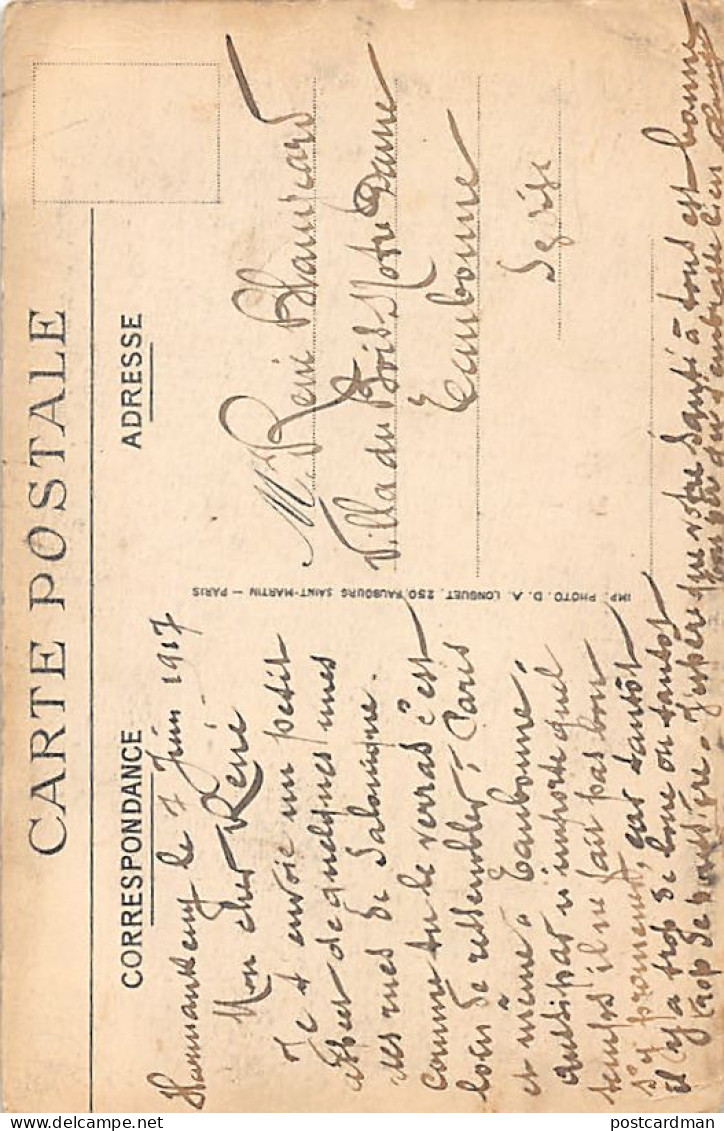 CARTE POSTALE
CORRESPONDANCE
ADRESSE
le 7 Juin 1917
Mon cher René
Je t'envoie un petit
apperçu de quelques unes
des rues de Salonique.
comme tu le verras c'est
loin de ressembler à Paris
et même à Eaubonne,
aussi par n'importe quel
temps il ne fait pas bon
s'y promener, car tantôt
il y a trop de boue ou tantôt
trop de poussière. J'espère que votre santé à tous est bonne
qui t'embrasse bien
IMP. PHOTO. D. A. LONGUET, 250, FAUBOURG SAINT-MARTIN – PARIS
Mr René Blanchard
Villa du Bois Notre Dame
Eaubonne
S et Oise
postcardman